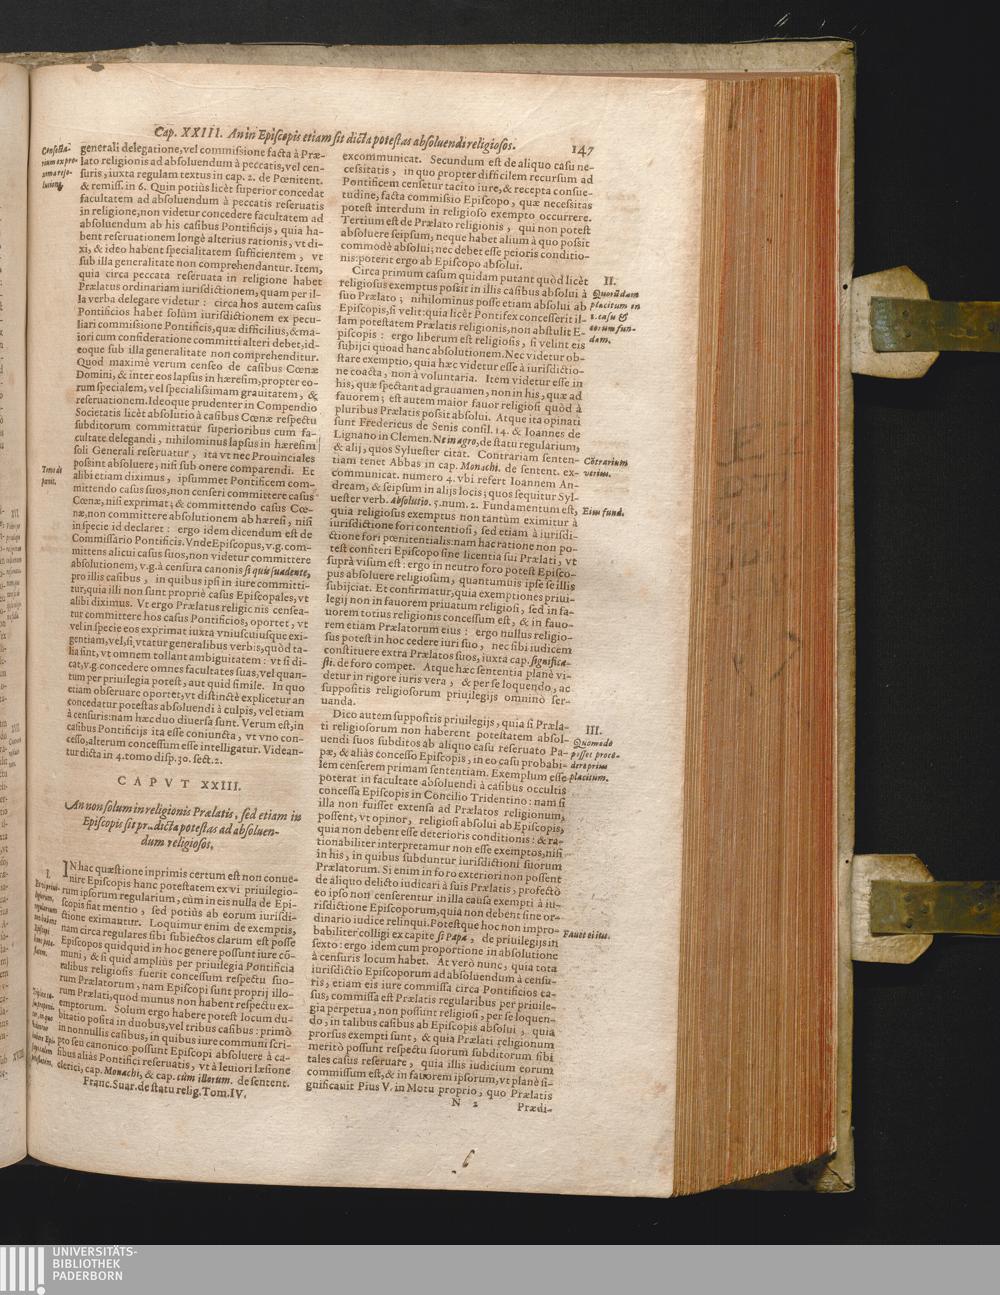 Cap. XXIII. An in Episcopis etiam sit dicta potestas absoluendi religiosos. 147
generali delegatione, vel commissione facta à Præ-
lato religionis ad absoluendum à peccatis, vel cen-
suris, iuxta regulam textus in cap. 2. de Pœnitent.
& remiss. in 6. Quin potiùs licèt superior concedat
facultatem ad absoluendum à peccatis reseruatis
in religione, non videtur concedere facultatem ad
absoluendum ab his casibus Pontificijs, quia ha-
bent reseruationem longè alterius rationis, vt di-
xi, & ideo habent specialitatem sufficientem, vt
sub illa generalitate non comprehendantur. Item,
quia circa peccata reseruata in religione habet
Prælatus ordinariam iurisdictionem, quam per il-
la verba delegare videtur: circa hos autem casus
Pontificios habet solùm iurisdictionem ex pecu-
liari commissione Pontificis, quæ difficiliùs, & ma-
iori cum consideratione committi alteri debet, id-
eoque sub illa generalitate non comprehenditur.
Quod maximè verum censeo de casibus Cœnæ
Domini, & inter eos lapsus in hæresim, propter eo-
rum specialem, vel specialissimam grauitatem, &
reseruationem. Ideoque prudenter in Compendio
Societatis licèt absolutio à casibus Cœnæ respectu
subditorum committatur superioribus cum fa-
cultate delegandi, nihilominus lapsus in hæresim
soli Generali reseruatur, ita vt nec Prouinciales
possint absoluere, nisi sub onere comparendi. Et
alibi etiam diximus, ipsummet Pontificem com-
mittendo casus suos, non censeri committere casus
Cœnæ, nisi exprimat; & committendo casus Cœ-
næ, non committere absolutionem ab hæresi, nisi
in specie id declaret: ergo idem dicendum est de
Commissario Pontificis. Vnde Episcopus, v.g. com-
mittens alicui casus suos, non videtur committere
absolutionem, v.g. à censura canonis si quis suadente,
pro illis casibus, in quibus ipsi in iure committi-
tur, quia illi non sunt propriè casus Episcopales, vt
alibi diximus. Vt ergo Prælatus religionis censea-
tur committere hos casus Pontificios, oportet, vt
vel in specie eos exprimat iuxta vniuscuiusque exi-
gentiam, vel, si vtatur generalibus verbis, quòd ta-
lia sint, vt omnem tollant ambiguitatem: vt si di-
cat, v.g. concedere omnes facultates suas, vel quan-
tum per priuilegia potest, aut quid simile. In quo
etiam obseruare oportet, vt distinctè explicetur an
concedatur potestas absoluendi à culpis, vel etiam
à censuris: nam hæc duo diuersa sunt. Verum est, in
casibus Pontificijs ita esse coniuncta, vt vno con-
cesso, alterum concessum esse intelligatur. Videan-
tur dicta in 4. tomo disp. 30. sect. 2.
CAPVT XXIII.
An non solum in religionis Prælatis, sed etiam in
Episcopis sit prædicta potestas ad absoluen-
dum religiosos.
I.
IN hac quæstione inprimis certum est non conue-
nire Episcopis hanc potestatem ex vi priuilegio-
rum ipsorum regularium, cùm in eis nulla de Epi-
scopis fiat mentio, sed potiùs ab eorum iurisdi-
ctione eximantur. Loquimur enim de exemptis,
nam circa regulares sibi subiectos clarum est posse
Episcopos quidquid in hoc genere possunt iure cō-
muni, & si quid ampliùs per priuilegia Pontificia
talibus religiosis fuerit concessum respectu suo-
rum Prælatorum, nam Episcopi sunt proprij illo-
rum Prælati, quod munus non habent respectu ex-
emptorum. Solum ergo habere potest locum du-
bitatio posita in duobus, vel tribus casibus: primò
in nonnullis casibus, in quibus iure communi scri-
pto seu canonico possunt Episcopi absoluere à ca-
sibus aliàs Pontifici reseruatis, vt à leuiori læsione
clerici, cap. Monachi, & cap. cùm illorum. de sentent.
Franc. Suar. de statu relig. Tom. IV.
excommunicat. Secundum est de aliquo casu ne-
cessitatis, in quo propter difficilem recursum ad
Pontificem censetur tacito iure, & recepta consue-
tudine, facta commissio Episcopo, quæ necessitas
potest interdum in religioso exempto occurrere.
Tertium est de Prælato religionis, qui non potest
absoluere seipsum, neque habet alium à quo possit
commodè absolui; nec debet esse peioris conditio-
nis: poterit ergo ab Episcopo absolui.
Circa primum casum quidam putant quòd licèt
religiosus exemptus possit in illis casibus absolui à
suo Prælato; nihilominus posse etiam absolui ab
Episcopis, si velit: quia licèt Pontifex concesserit il-
lam potestatem Prælatis religionis, non abstulit E-
piscopis: ergo liberum est religiosis, si velint eis
subijci quoad hanc absolutionem. Nec videtur ob-
stare exemptio, quia hæc videtur esse à iurisdictio-
ne coacta, non à voluntaria. Item videtur esse in
his, quæ spectant ad grauamen, non in his, quæ ad
fauorem; est autem maior fauor religiosi quòd à
pluribus Prælatis possit absolui. Atque ita opinati
sunt Fredericus de Senis consil. 14. & Ioannes de
Lignano in Clemen. Ne in agro, de statu regularium,
& alij, quos Syluester citat. Contrariam senten-
tiam tenet Abbas in cap. Monachi. de sentent. ex-
communicat. numero 4. vbi refert Ioannem An-
dream, & seipsum in alijs locis; quos sequitur Syl-
uester verb. Absolutio. 5. num. 2. Fundamentum est,
quia religiosus exemptus non tantùm eximitur à
iurisdictione fori contentiosi, sed etiam à iurisdi-
ctione fori pœnitentialis: nam hac ratione non po-
test confiteri Episcopo sine licentia sui Prælati, vt
suprà visum est: ergo in neutro foro potest Episco-
pus absoluere religiosum, quantumuis ipse se illis
subijciat. Et confirmatur, quia exemptiones priui-
legij non in fauorem priuatum religiosi, sed in fa-
uorem totius religionis concessum est, & in fauo-
rem etiam Prælatorum eius: ergo nullus religio-
sus potest in hoc cedere iuri suo, nec sibi iudicem
constituere extra Prælatos suos, iuxta cap. significa-
sti. de foro compet. Atque hæc sententia planè vi-
detur in rigore iuris vera, & per se loquendo, ac
suppositis religiosorum priuilegijs omninò ser-
uanda.
Dico autem suppositis priuilegijs, quia si Præla-
ti religiosorum non haberent potestatem absol-
uendi suos subditos ab aliquo casu reseruato Pa-
pæ, & aliàs concesso Episcopis, in eo casu probabi-
lem censerem primam sententiam. Exemplum esse
poterat in facultate absoluendi à casibus occultis
concessa Episcopis in Concilio Tridentino: nam si
illa non fuisset extensa ad Prælatos religionum,
possent, vt opinor, religiosi absolui ab Episcopis,
quia non debent esse deterioris conditionis: & ra-
tionabiliter interpretamur non esse exemptos, nisi
in his, in quibus subduntur iurisdictioni suorum
Prælatorum. Si enim in foro exteriori non possent
de aliquo delicto iudicari à suis Prælatis, profectò
eo ipso non censerentur in illa causa exempti à iu-
risdictione Episcoporum, quia non debent sine or-
dinario iudice relinqui. Potestque hoc non impro-
babiliter colligi ex capite si Papa, de priuilegijs in
sexto: ergo idem cum proportione in absolutione
à censuris locum habet. At verò nunc, quia tota
iurisdictio Episcoporum ad absoluendum à censu-
ris, etiam eis iure commissa circa Pontificios ca-
sus, commissa est Prælatis regularibus per priuile-
gia perpetua, non possunt religiosi, per se loquen-
do, in talibus casibus ab Episcopis absolui, quia
prorsus exempti sunt, & quia Prælati religionum
meritò possunt respectu suorum subditorum sibi
tales casus reseruare, quia illis iudicium eorum
commissum est, & in fauorem ipsorum, vt planè si-
gnificauit Pius V. in Motu proprio, quo Prælatis
N 2 Prædi-
II.
Quorūdam
placitum in
1. casu &
eorum fun-
dam.
Cōtrarium
verius.
Eius fund.
III.
Quomodo
posset proce-
dere prius
placitum.
Fauet ei ius.
UNIVERSITÄTS-
BIBLIOTHEK
PADERBORN